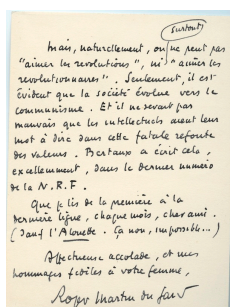 (surtout)
mais, naturellement, on ne peut pas
"aimer les révolutions", ni "aimer les
révolutionnaires". Seulement, il est
évident que la société évolue vers le
communisme. Et il ne serait pas
mauvais que les intellectuels aient leur
mot à dire dans cette fatale refonte
des valeurs. Bertaux a écrit cela,
excellemment, dans le dernier numéro
de la N.R.F.
Que je lis de la première à la
dernière ligne, chaque mois, cher ami.
(Sauf l'Alouette. Ça non, impossible...)
Affectueuse accolade, et mes
hommages fidèles à votre femme,
Roger Martin du Gard